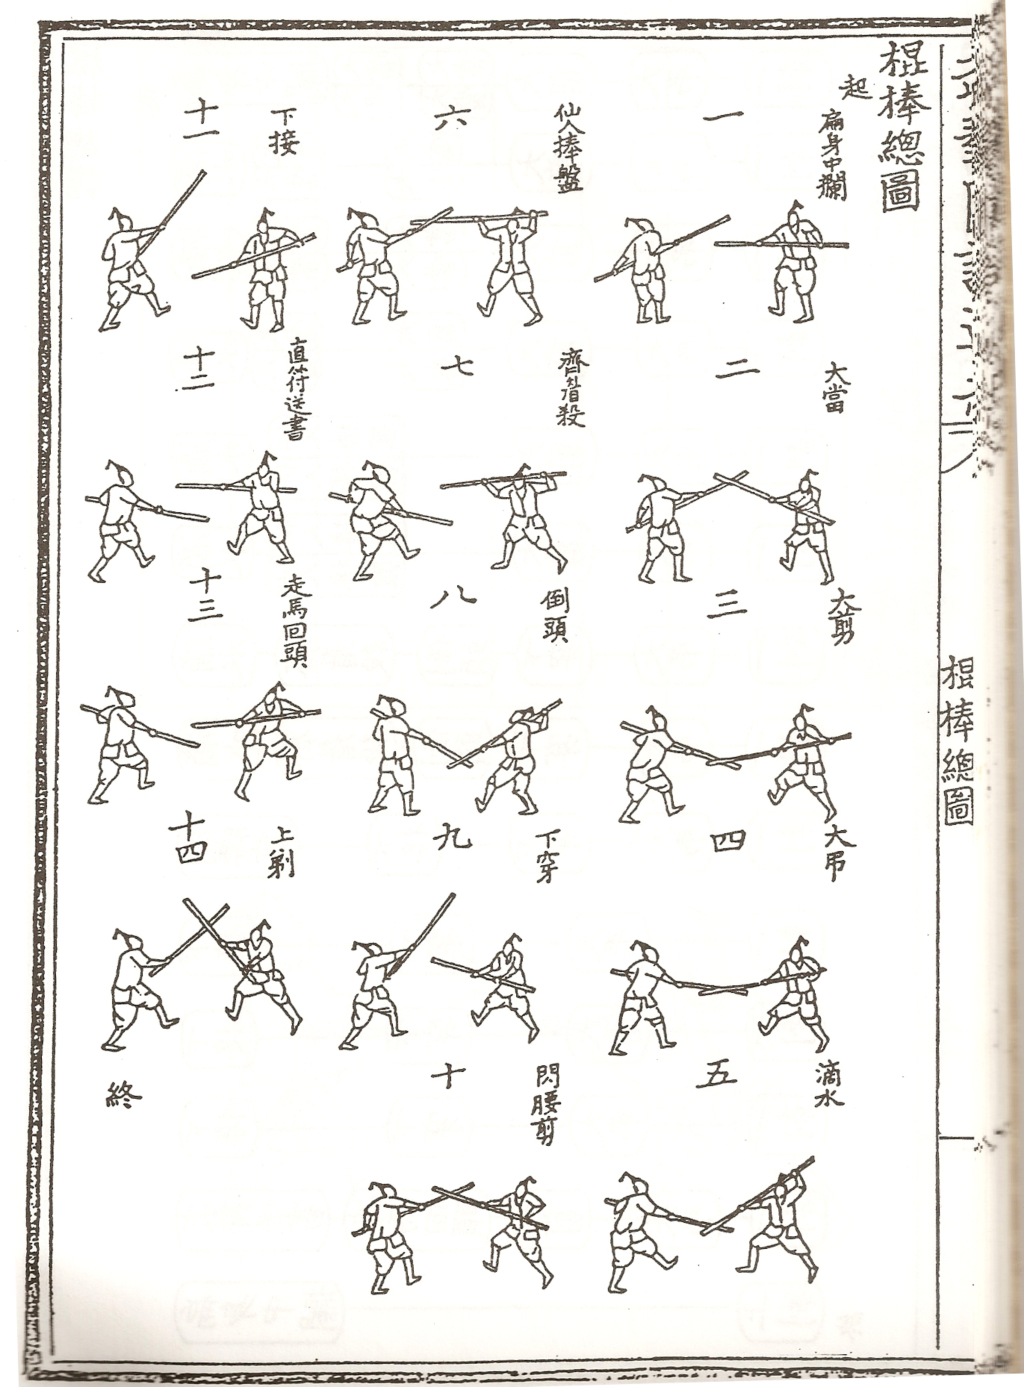 棍棒總圖
棍棒總圖
起
扁身中攔
一
大當
二
大剪
三
大吊
四
滴水
五
仙人捧盤
六
齊眉殺
七
倒頭
八
下穿
九
閃腰剪
十
下接
十一
直符送書
十二
走馬回頭
十三
上剃
十四
終